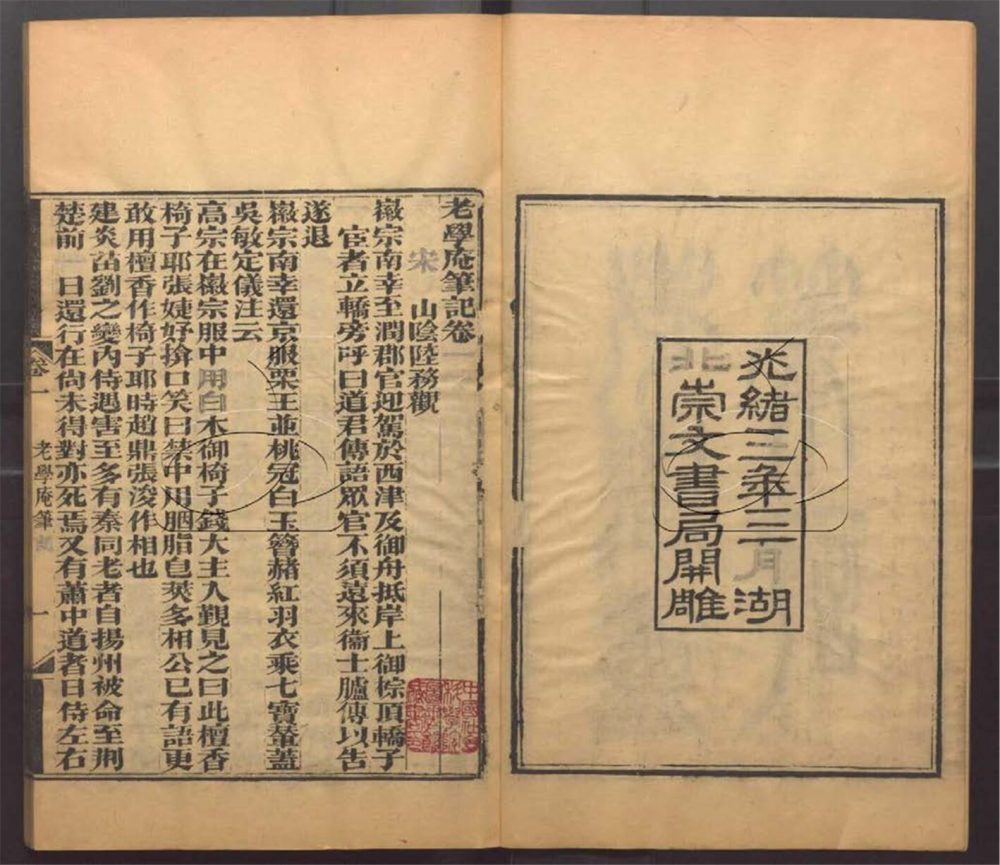 光緒三年三月湖
北崇文書局開雕
老學庵筆記卷一
宋 山陰陸務觀
徽宗南幸至潤郡官迎駕於西津及御舟抵岸上御棕頂轎子
宦者立轎旁呼曰道君傳語眾官不須遠來衞士臚傳以告
遂退
徽宗南幸還京服栗玉並桃冠白玉簪赭紅羽衣乘七寶輦蓋
吳敏定儀注云
高宗在徽宗服中用白木御椅子錢大主入覲見之曰此檀香
椅子耶張婕妤掩口笑曰禁中用胭脂皂莢多相公已有語更
敢用檀香作椅子耶時趙鼎張浚作相也
建炎苗劉之變內侍遇害至多有秦同老者自揚州被命至荆
楚前一日還行在尙未得對亦死焉又有蕭中道者日侍左右
卷一
老學庵筆記
一